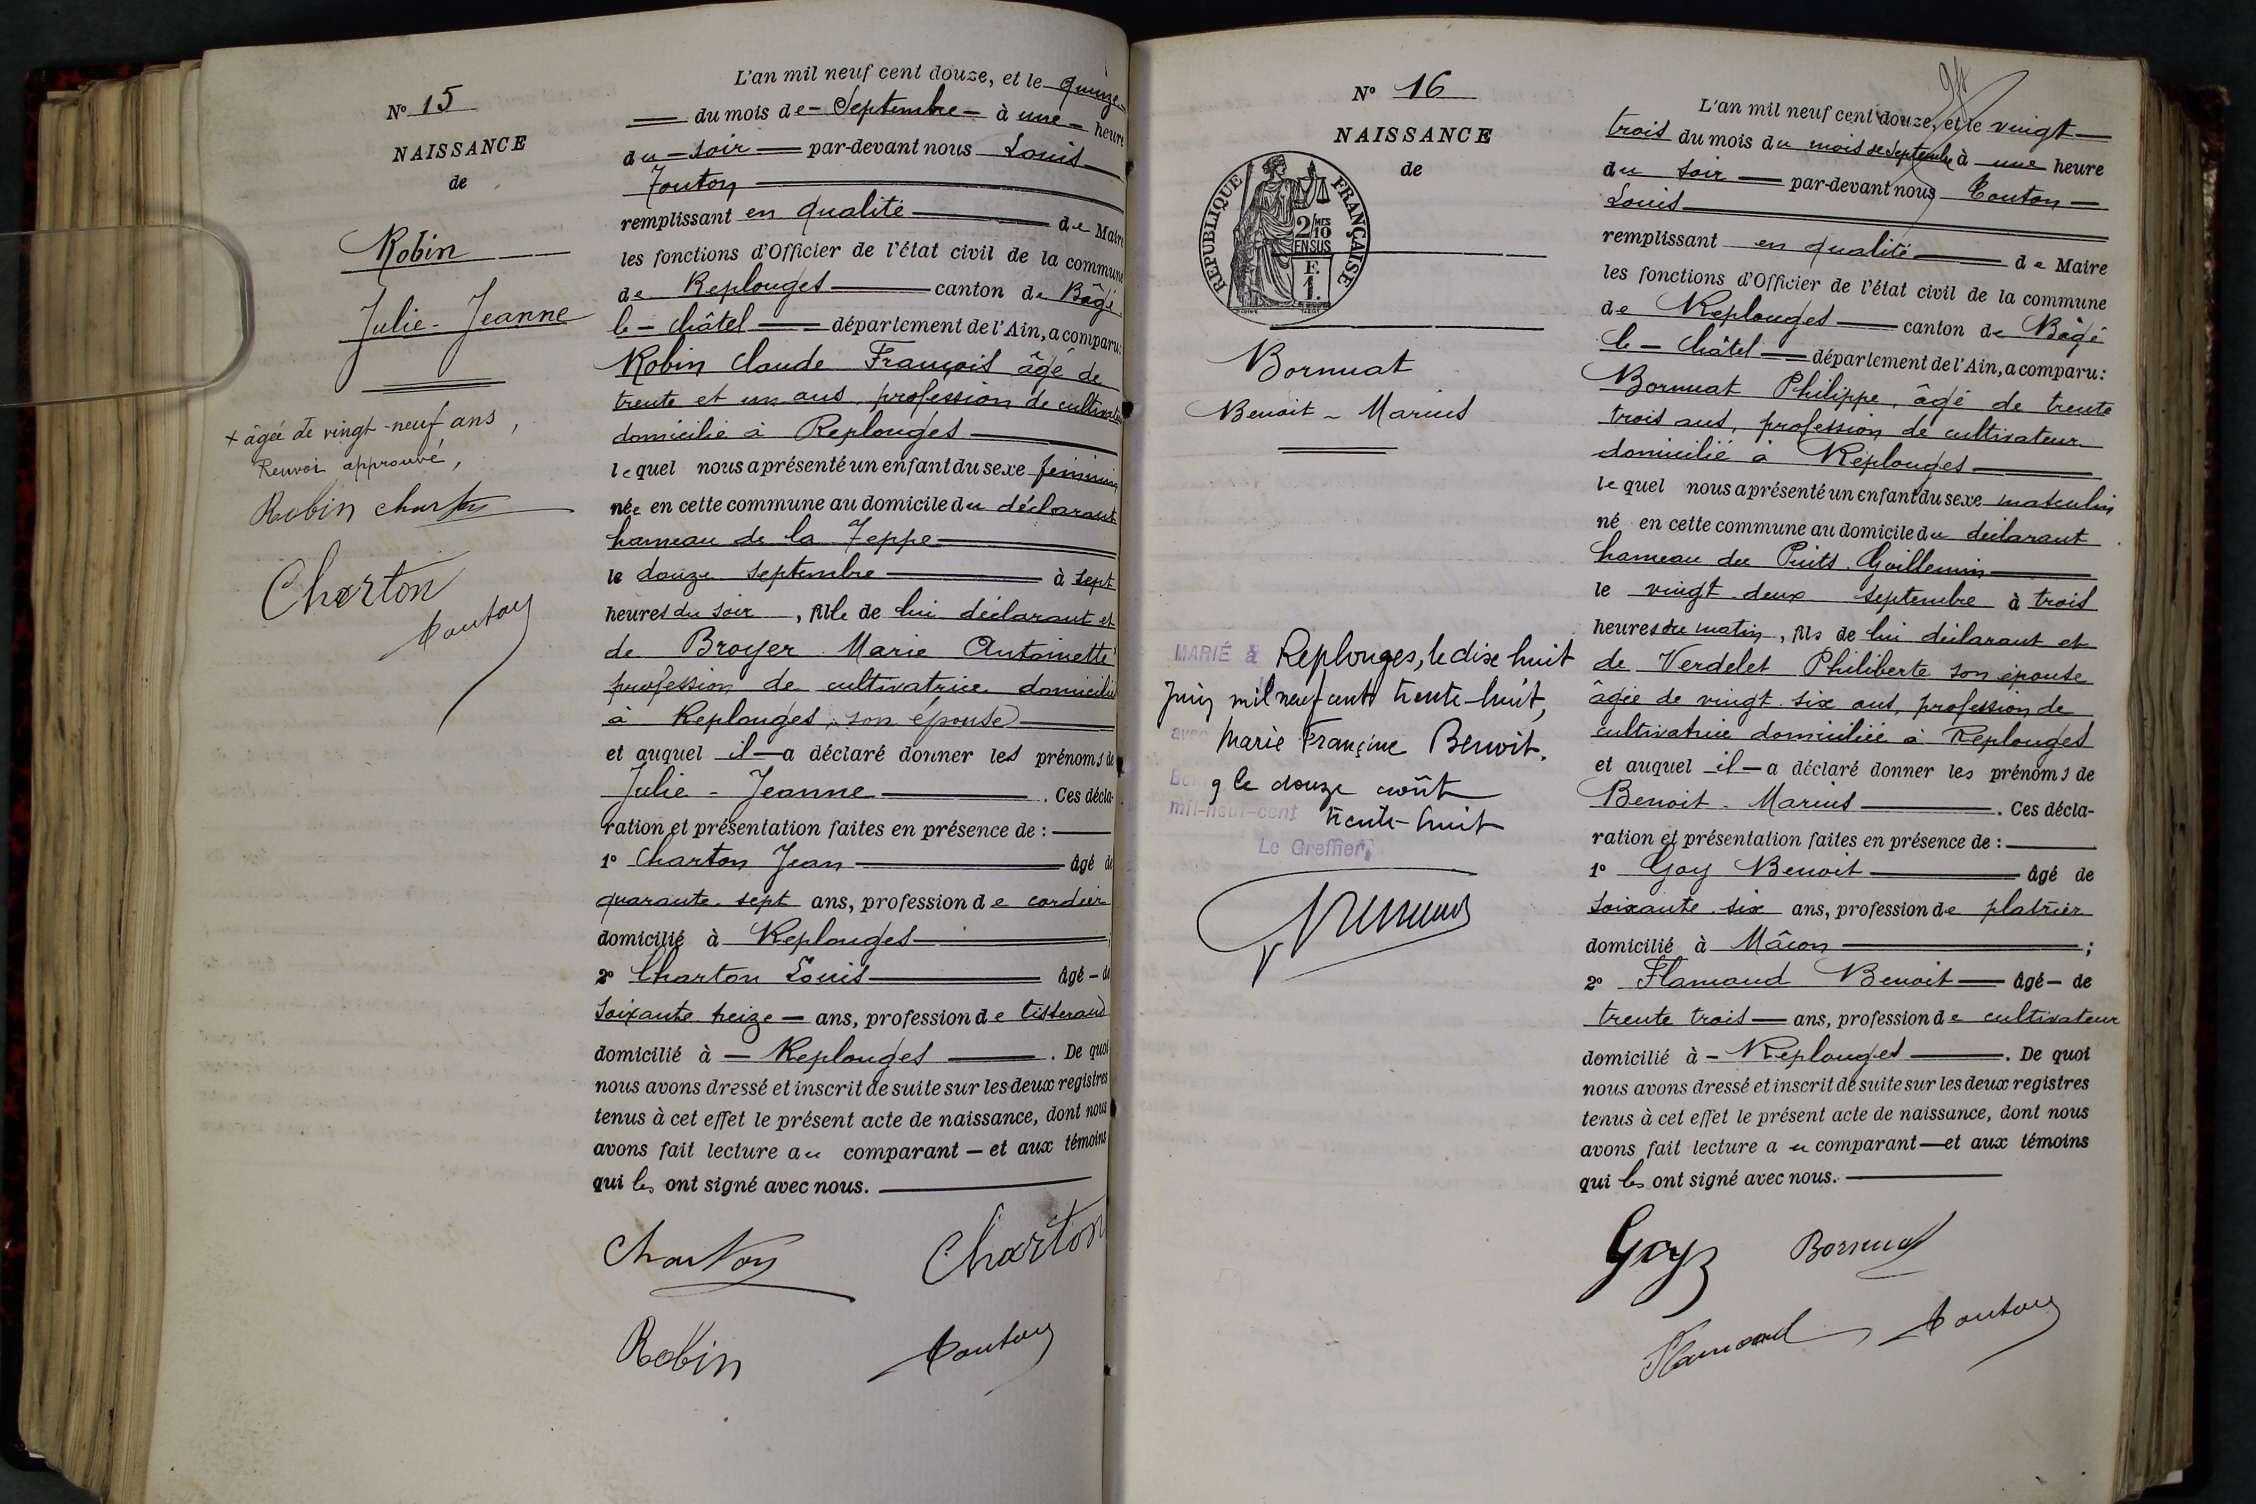 N° 15
NAISSANCE
de
Robin
Julie - Jeanne
+ âgée de vingt-neuf ans,
Renvoi approuvé,
Robin Charton
Charton
Touton
L'an mil neuf cent douze, et le quinze
du mois de Septembre à une heure
du soir par-devant nous Louis
Touton
remplissant en qualité de Maire
les fonctions d'Officier de l'état civil de la commune
de Replonges canton de Bâgé
le-Châtel département de l'Ain, a comparu:
Robin Claude François âgé de
trente et un ans, profession de cultivateur
domicilié à Replonges
lequel nous a présenté un enfant du sexe féminin
née en cette commune au domicile du déclarant
hameau de la Teppe
le douze septembre à sept
heures du soir, fille de lui déclarant et
de Broyer Marie Antoinette
profession de cultivatrice domiciliée
à Replonges, son épouse
et auquel il a déclaré donner les prénoms de
Julie - Jeanne. Ces décla-
ration et présentation faites en présence de :
1° Charton Jean âgé de
quarante-sept ans, profession de cordier
domicilié à Replonges;
2° Charton Louis âgé de
soixante treize ans, profession de tisserand
domicilié à Replonges. De quoi
nous avons dressé et inscrit de suite sur les deux registres
tenus à cet effet le présent acte de naissance, dont nous
avons fait lecture au comparant et aux témoins
qui les ont signé avec nous.
Charton Charton
Robin Touton
N° 16
NAISSANCE
de
REPUBLIQUE FRANÇAISE
2/10 MES
EN SUS
F.
1.
Bornuat
Benoit - Marius
MARIÉ à Replonges, le dix huit
Juin mil neuf cent trente-huit,
avec Marie Françine Benoit.
le douze août
mil-neuf-cent trente-huit
Le Greffier,
94
L'an mil neuf cent douze, et le vingt
trois du mois du mois de Septembre à une heure
du soir par-devant nous Touton
Louis
remplissant en qualité de Maire
les fonctions d'Officier de l'état civil de la commune
de Replonges canton de Bâgé
le-Châtel département de l'Ain, a comparu:
Bornuat Philippe, âgé de trente
trois ans, profession de cultivateur
domicilié à Replonges
lequel nous a présenté un enfant du sexe masculin
né en cette commune au domicile du déclarant
hameau du Puits Guillemin
le vingt deux septembre à trois
heures du matin, fils de lui déclarant et
de Verdelet Philiberte son épouse
âgée de vingt six ans, profession de
cultivatrice domiciliée à Replonges
et auquel il a déclaré donner les prénoms de
Benoit - Marius. Ces décla-
ration et présentation faites en présence de :
1° Goy Benoit âgé de
soixante six ans, profession de platrier
domicilié à Mâcon;
2° Flamand Benoit âgé de
trente trois ans, profession de cultivateur
domicilié à Replonges. De quoi
nous avons dressé et inscrit de suite sur les deux registres
tenus à cet effet le présent acte de naissance, dont nous
avons fait lecture au comparant et aux témoins
qui les ont signé avec nous.
Goy Bornuat
Flamand Touton